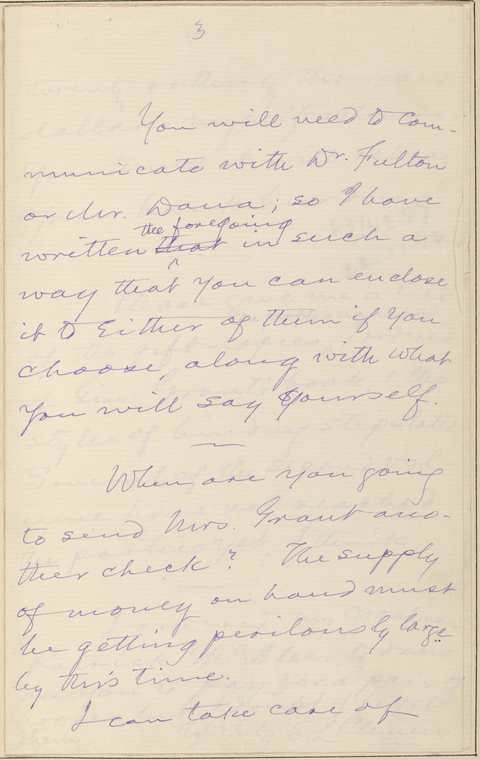 3
You will need to com-
municate with Dr. Fulton
or Mr. Dana; so I have
the foregoing
written that in such a
way that you can enclose
it to Either of them if you
choose, along with what
you will say yourself.
When are you going
to send Mrs. Grant ano-
ther check? The supply
of money on hand must
be getting perilously large
by this time.
I can take care of